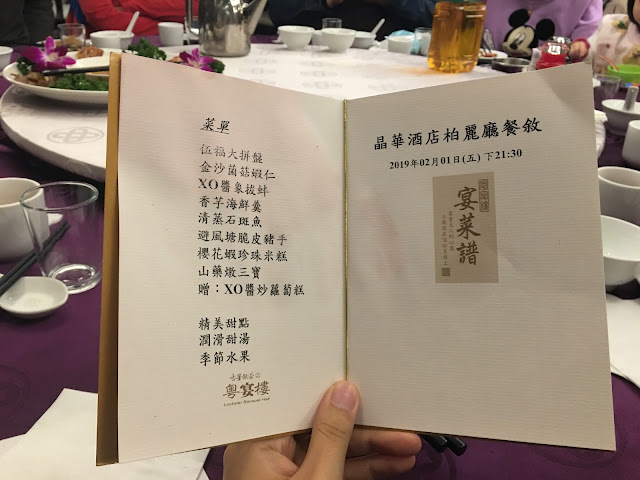 菜單
伍福大拼盤
金沙菌菇蝦仁
XO醬象拔蚌
香芋海鮮羹
清蒸石斑魚
避風塘脆皮豬手
櫻花蝦珍珠米糕
山藥燉三寶
贈：XO醬炒蘿蔔糕
精美甜點
潤滑甜湯
季節水果
粵宴樓
晶華酒店柏麗廳餐敘
2019年02月01日(五)下21:30
宴菜譜